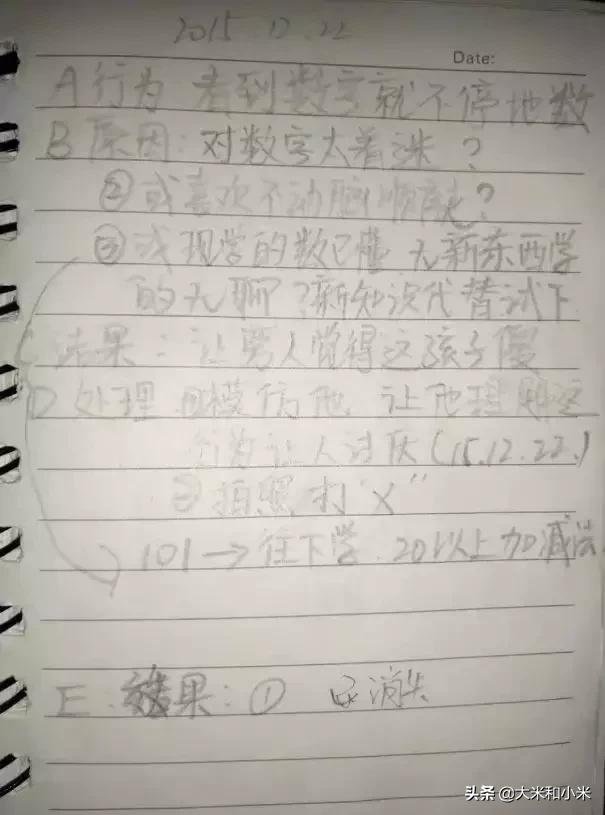 2015.12.22
Date:
A 行为 看到数字就不停地数
B 原因:对数字太着迷?
②或喜欢不动脑顺着走?
③或现学的数已懂 无新东西学
的无聊?新知识代替试下
C 结果:让旁人觉得这孩子傻
D 处理 ①模仿他 让他理解这
行为让人讨厌(15.12.22.)
②拍照打"X"
101→往下学 20以上加减法
E 效果:① 已消失
头条 @大米和小米